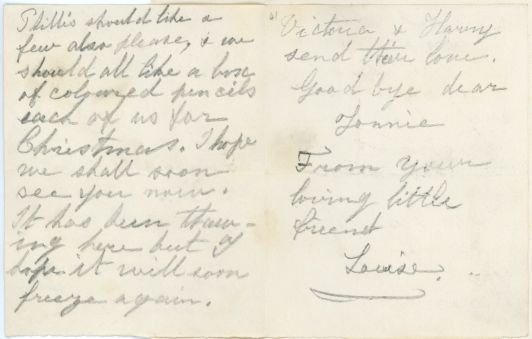 Phillis should like a
few also please, & we
should all like a box
of coloured pencils
each of us for
Christmas. I hope
we shall soon
see you now.
It has been thaw-
ing here but I
hope it will soon
freeze again.
Victoria & Harry
send their love.
Good bye dear
Tonnie
From your
loving little
friend
Louise.